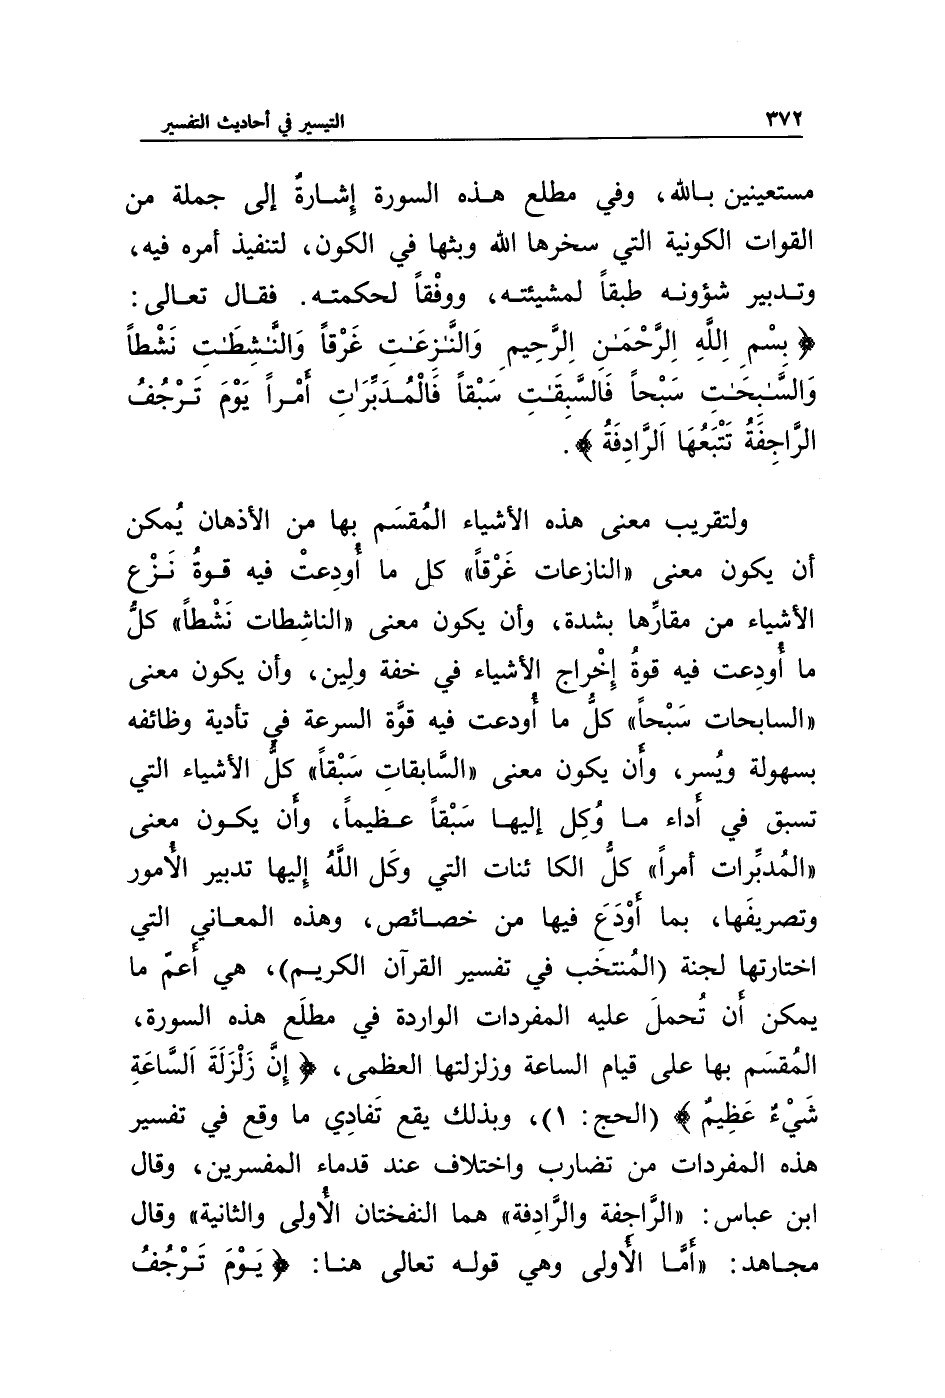 ٣٧٢
التيسير في أحاديث التفسير
مستعينين بالله، وفي مطلع هذه السورة إشارةٌ إلى جملة من
القوات الكونية التي سخرها الله وبثها في الكون، لتنفيذ أمره فيه،
وتدبير شؤونه طبقاً لمشيئته، ووفْقاً لحكمته. فقال تعالى:
﴿ بِسْمِ اِللَّهِ اِلرَّحْمَٰنِ اِلرَّحِيمِ وَالنَّٰزِعَٰتِ غَرْقاً وَالنَّٰشِطَٰتِ نَشْطاً
وَالسَّٰبِحَٰتِ سَبْحاً فَالسَّٰبِقَٰتِ سَبْقاً فَالْمُدَبِّرَٰتِ أَمْراً يَوْمَ تَرْجُفُ
اُلرَّاجِفَةُ تَتْبَعُهَا اَلرَّادِفَةُ ﴾.
ولتقريب معنى هذه الأشياء المُقسَم بها من الأذهان يُمكن
أن يكون معنى «النازعات غَرْقاً» كل ما أُودِعتْ فيه قوةُ نَزْع
الأشياء من مقارِّها بشدة، وأن يكون معنى «الناشطات نَشْطاً» كلُّ
ما أُودِعت فيه قوةُ إخْراج الأشياء في خفة ولِين، وأن يكون معنى
«السابحات سَبْحاً» كلُّ ما أُودعت فيه قوَّة السرعة في تأدية وظائفه
بسهولة ويُسر، وأن يكون معنى «السَّابقاتِ سَبْقاً» كلُّ الأشياء التي
تسبق في أَداء ما وُكِل إليها سَبْقاً عظيماً، وأَن يكون معنى
«المُدبِّرات أمراً» كلُّ الكا ئنات التي وكَل اللَّهُ إليها تدبير الأُمور
وتصريفَها، بما أَوْدَعَ فيها من خصائص، وهذه المعاني التي
اختارتها لجنة (المُنتخَب في تفسير القرآن الكريم)، هي أَعمّ ما
يمكن أَن تُحملَ عليه المفردات الواردة في مطلَع هذه السورة،
المُقسَم بها على قيام الساعة وزلزلتها العظمى، ﴿ إِنَّ زَلْزَلَةَ اَلسَّاعَةِ
شَيْءٌ عَظِيمٌ ﴾ (الحج: ١)، وبذلك يقع تَفادِي ما وقع في تفسير
هذه المفردات من تضارب واختلاف عند قدماء المفسرين، وقال
ابن عباس: «الرَّاجفة والرَّادِفة» هما النفختان الأُولى والثانية» وقال
مجاهد: «أَمَّا الأُولى وهي قوله تعالى هنا: ﴿ يَوْمَ تَرْجُفُ